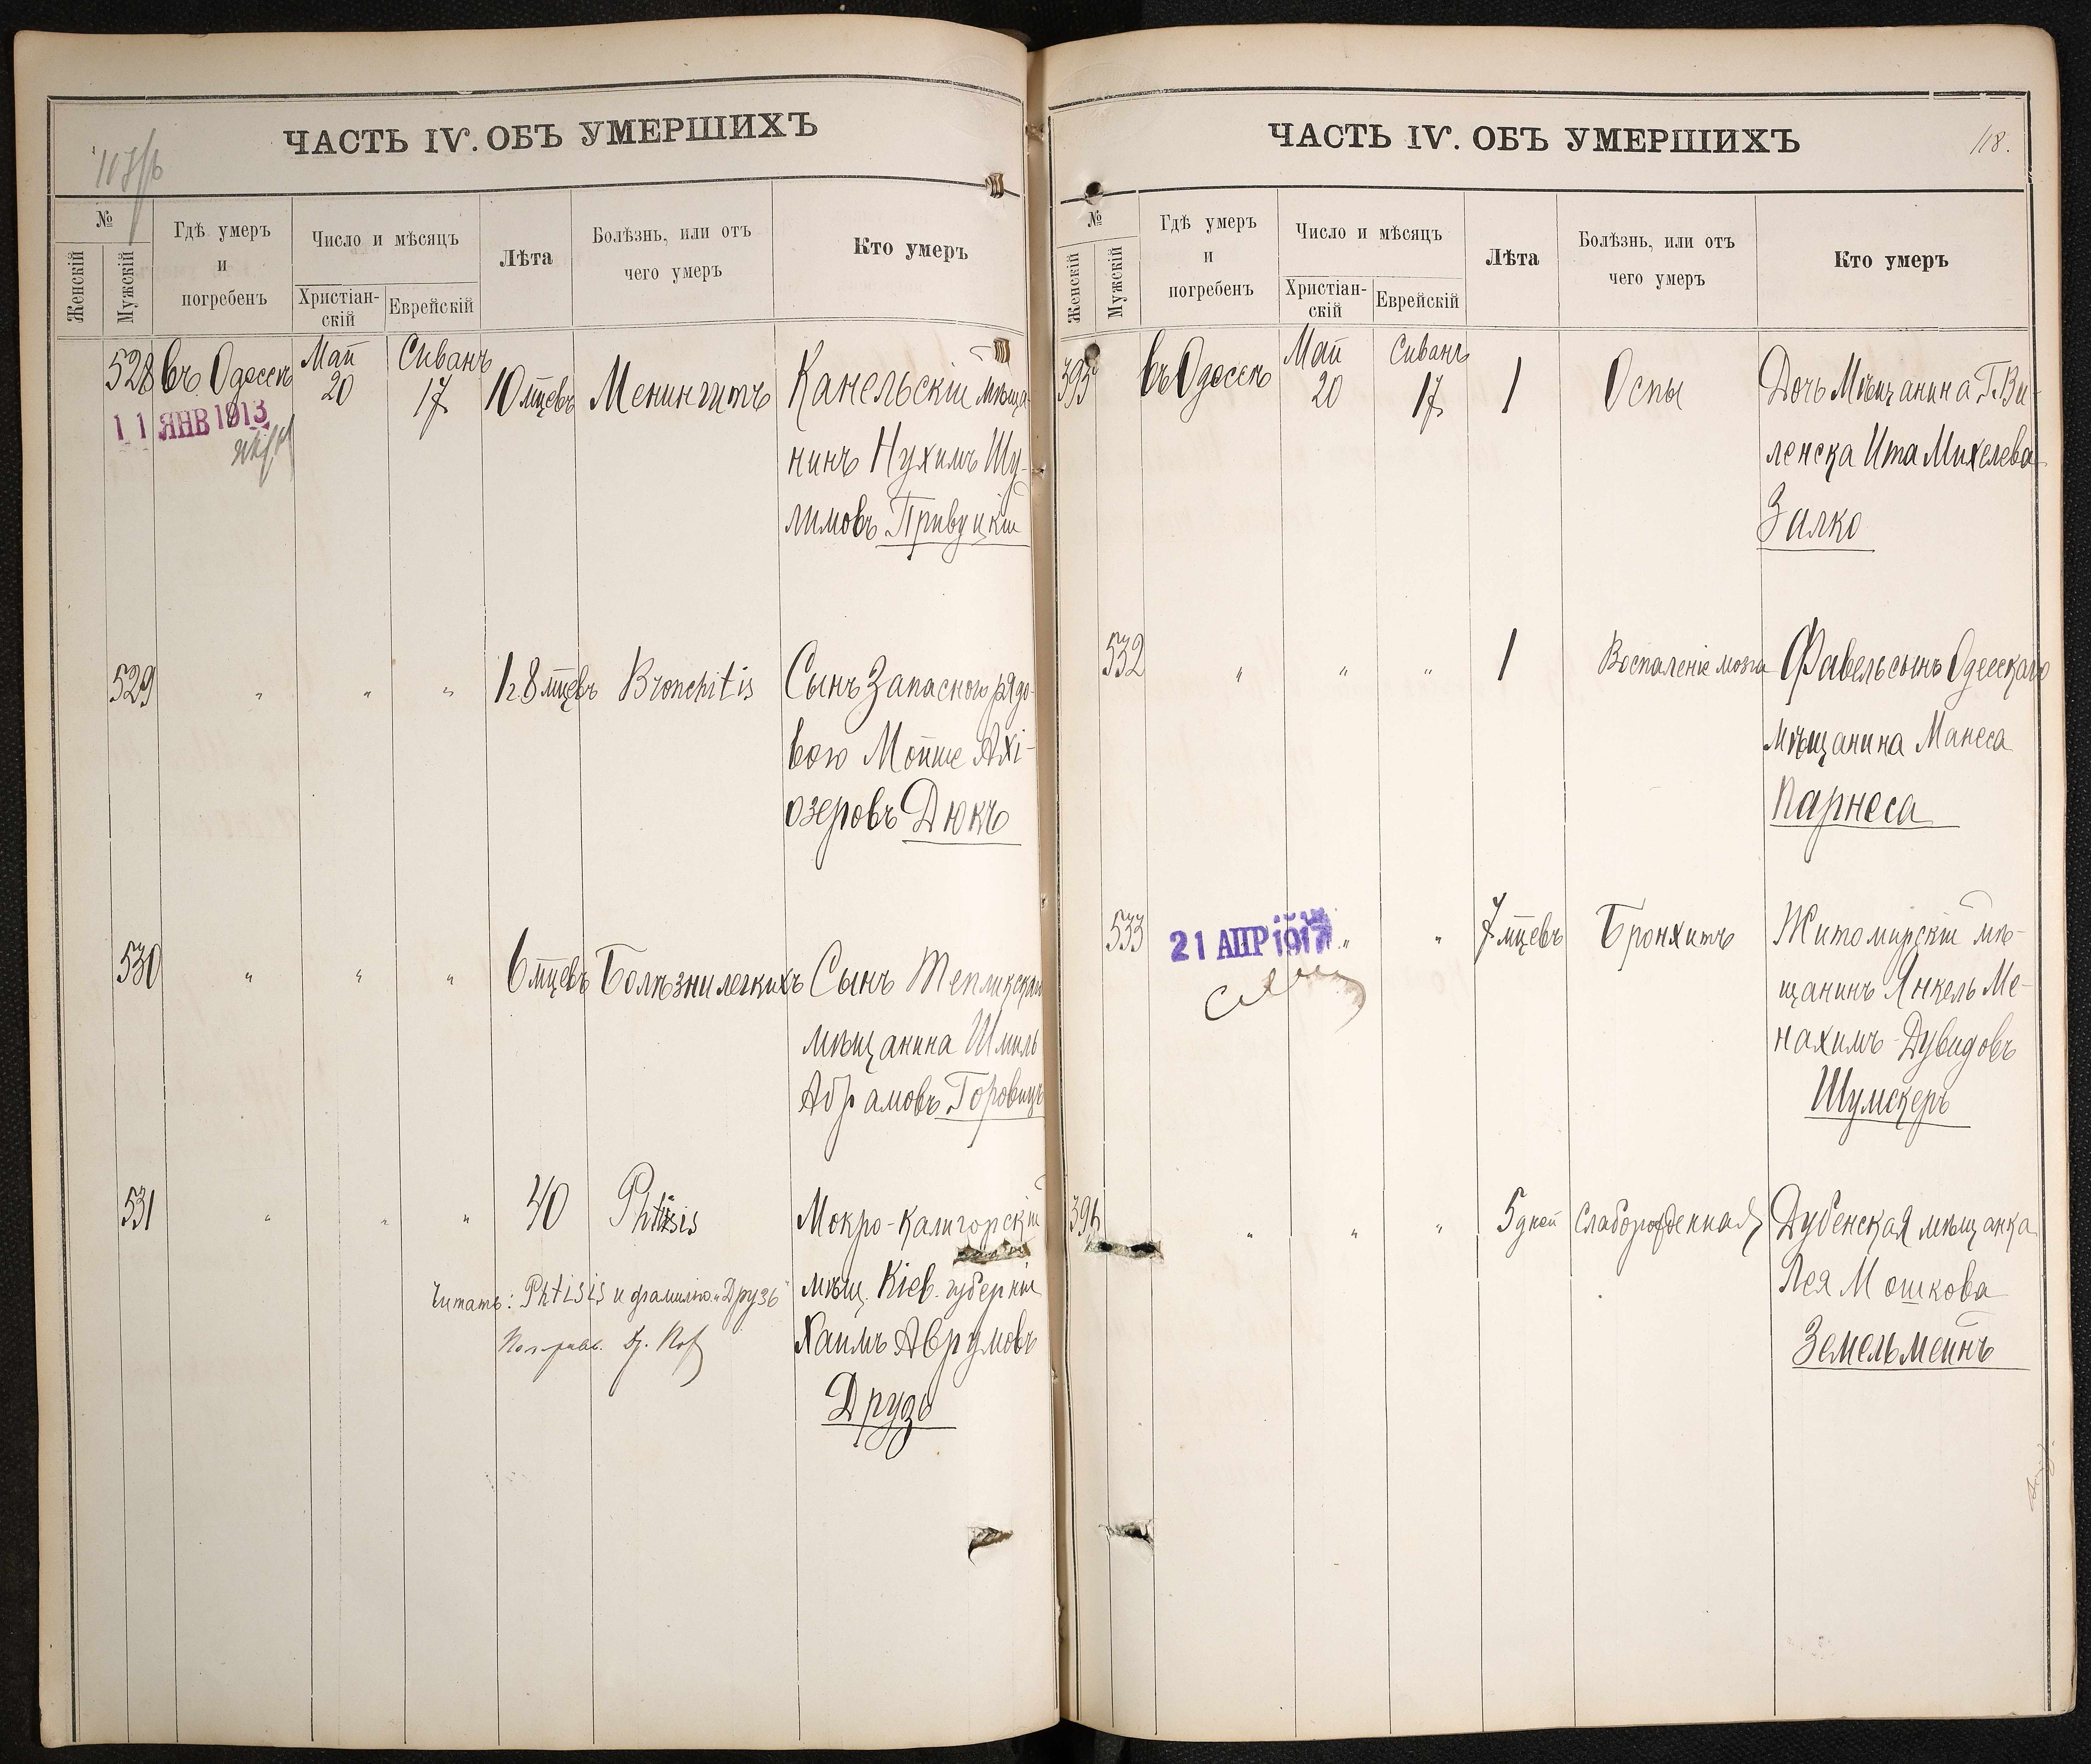 ЧАСТЬ IV. ОБЪ УМЕРШИХЪ
№
Женскій
Мужскій
Гдѣ умеръ
и
погребенъ
Число и мѣсяцъ
Христіан-
скій
Еврейскій
Лѣта
Болѣзнь, или отъ
чего умеръ
Кто умеръ
528 въ Одессѣ Май 20 Сиванъ 17 10 мцевъ Менингитъ Канельскій мѣща-
11 ЯНВ 1913
нинъ Нухимъ Шу-
лимовъ Привуцкій
529 " " " 1 г. 8 мцевъ Bronchitis Сынъ Запаснаго рядо-
вого Мойше Ахі-
озеровъ Дюкъ
530 " " " 6 мцевъ Болѣзни легкихъ Сынъ Тепликскаго
мѣщанина Шмиль
Абрамовъ Горовицъ
531 " " " 40 Phtisis Мокро-Калигорскій
мѣщ. Кіев. губерніи
Читать: Phtisis и фамилію „Друзь"
Хаимъ Аврумовъ
Друзь
ЧАСТЬ IV. ОБЪ УМЕРШИХЪ
118.
№
Женскій
Мужскій
Гдѣ умеръ
и
погребенъ
Число и мѣсяцъ
Христіан-
скій
Еврейскій
Лѣта
Болѣзнь, или отъ
чего умеръ
Кто умеръ
395 въ Одессѣ Май 20 Сиванъ 17 1 Оспы Дочь Мѣщанина Г. Ви-
ленска Ита Михелева
Залко
532 " " " 1 Воспаленіе мозга Фавель сынъ Одесскаго
мѣщанина Манеса
Парнеса
533 21 АПР 1917 " " 7 мцевъ Бронхитъ Житомирскій мѣ-
щанинъ Янкель Ме-
нахимъ-Дувидовъ
Шумскеръ
396 " " " 5 дней Слаборожденная Дубенская мѣщанка
Лея Мошкова
Земельмейнъ